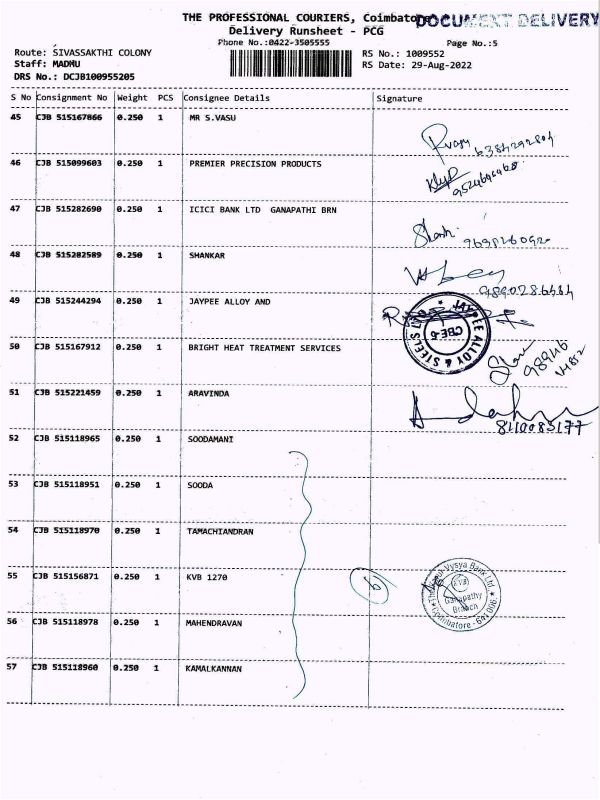 THE PROFESSIONAL COURIERS, Coimbatore
DOCUMENT DELIVERY
Delivery Runsheet - PCG
Phone No.:0422-3505555
Page No.:5
Route: SIVASSAKTHI COLONY
RS No.: 1009552
Staff: MADHU
RS Date: 29-Aug-2022
DRS No.: DCJB100955205
S No Consignment No Weight PCS Consignee Details Signature
45 CJB 515167866 0.250 1 MR S.VASU
46 CJB 515099603 0.250 1 PREMIER PRECISION PRODUCTS
47 CJB 515282690 0.250 1 ICICI BANK LTD GANAPATHI BRN
48 CJB 515282589 0.250 1 SHANKAR
49 CJB 515244294 0.250 1 JAYPEE ALLOY AND
JAYPEE ALLOY & STEELS
CBE-6
50 CJB 515167912 0.250 1 BRIGHT HEAT TREATMENT SERVICES
51 CJB 515221459 0.250 1 ARAVINDA
8110083177
52 CJB 515118965 0.250 1 SOODAMANI
53 CJB 515118951 0.250 1 SOODA
54 CJB 515118970 0.250 1 TAMACHIANDRAN
55 CJB 515156871 0.250 1 KVB 1270
Vysya Bank Ltd
Ganapathy
Branch
Coimbatore - 641 006
56 CJB 515118978 0.250 1 MAHENDRAVAN
57 CJB 515118960 0.250 1 KAMALKANNAN